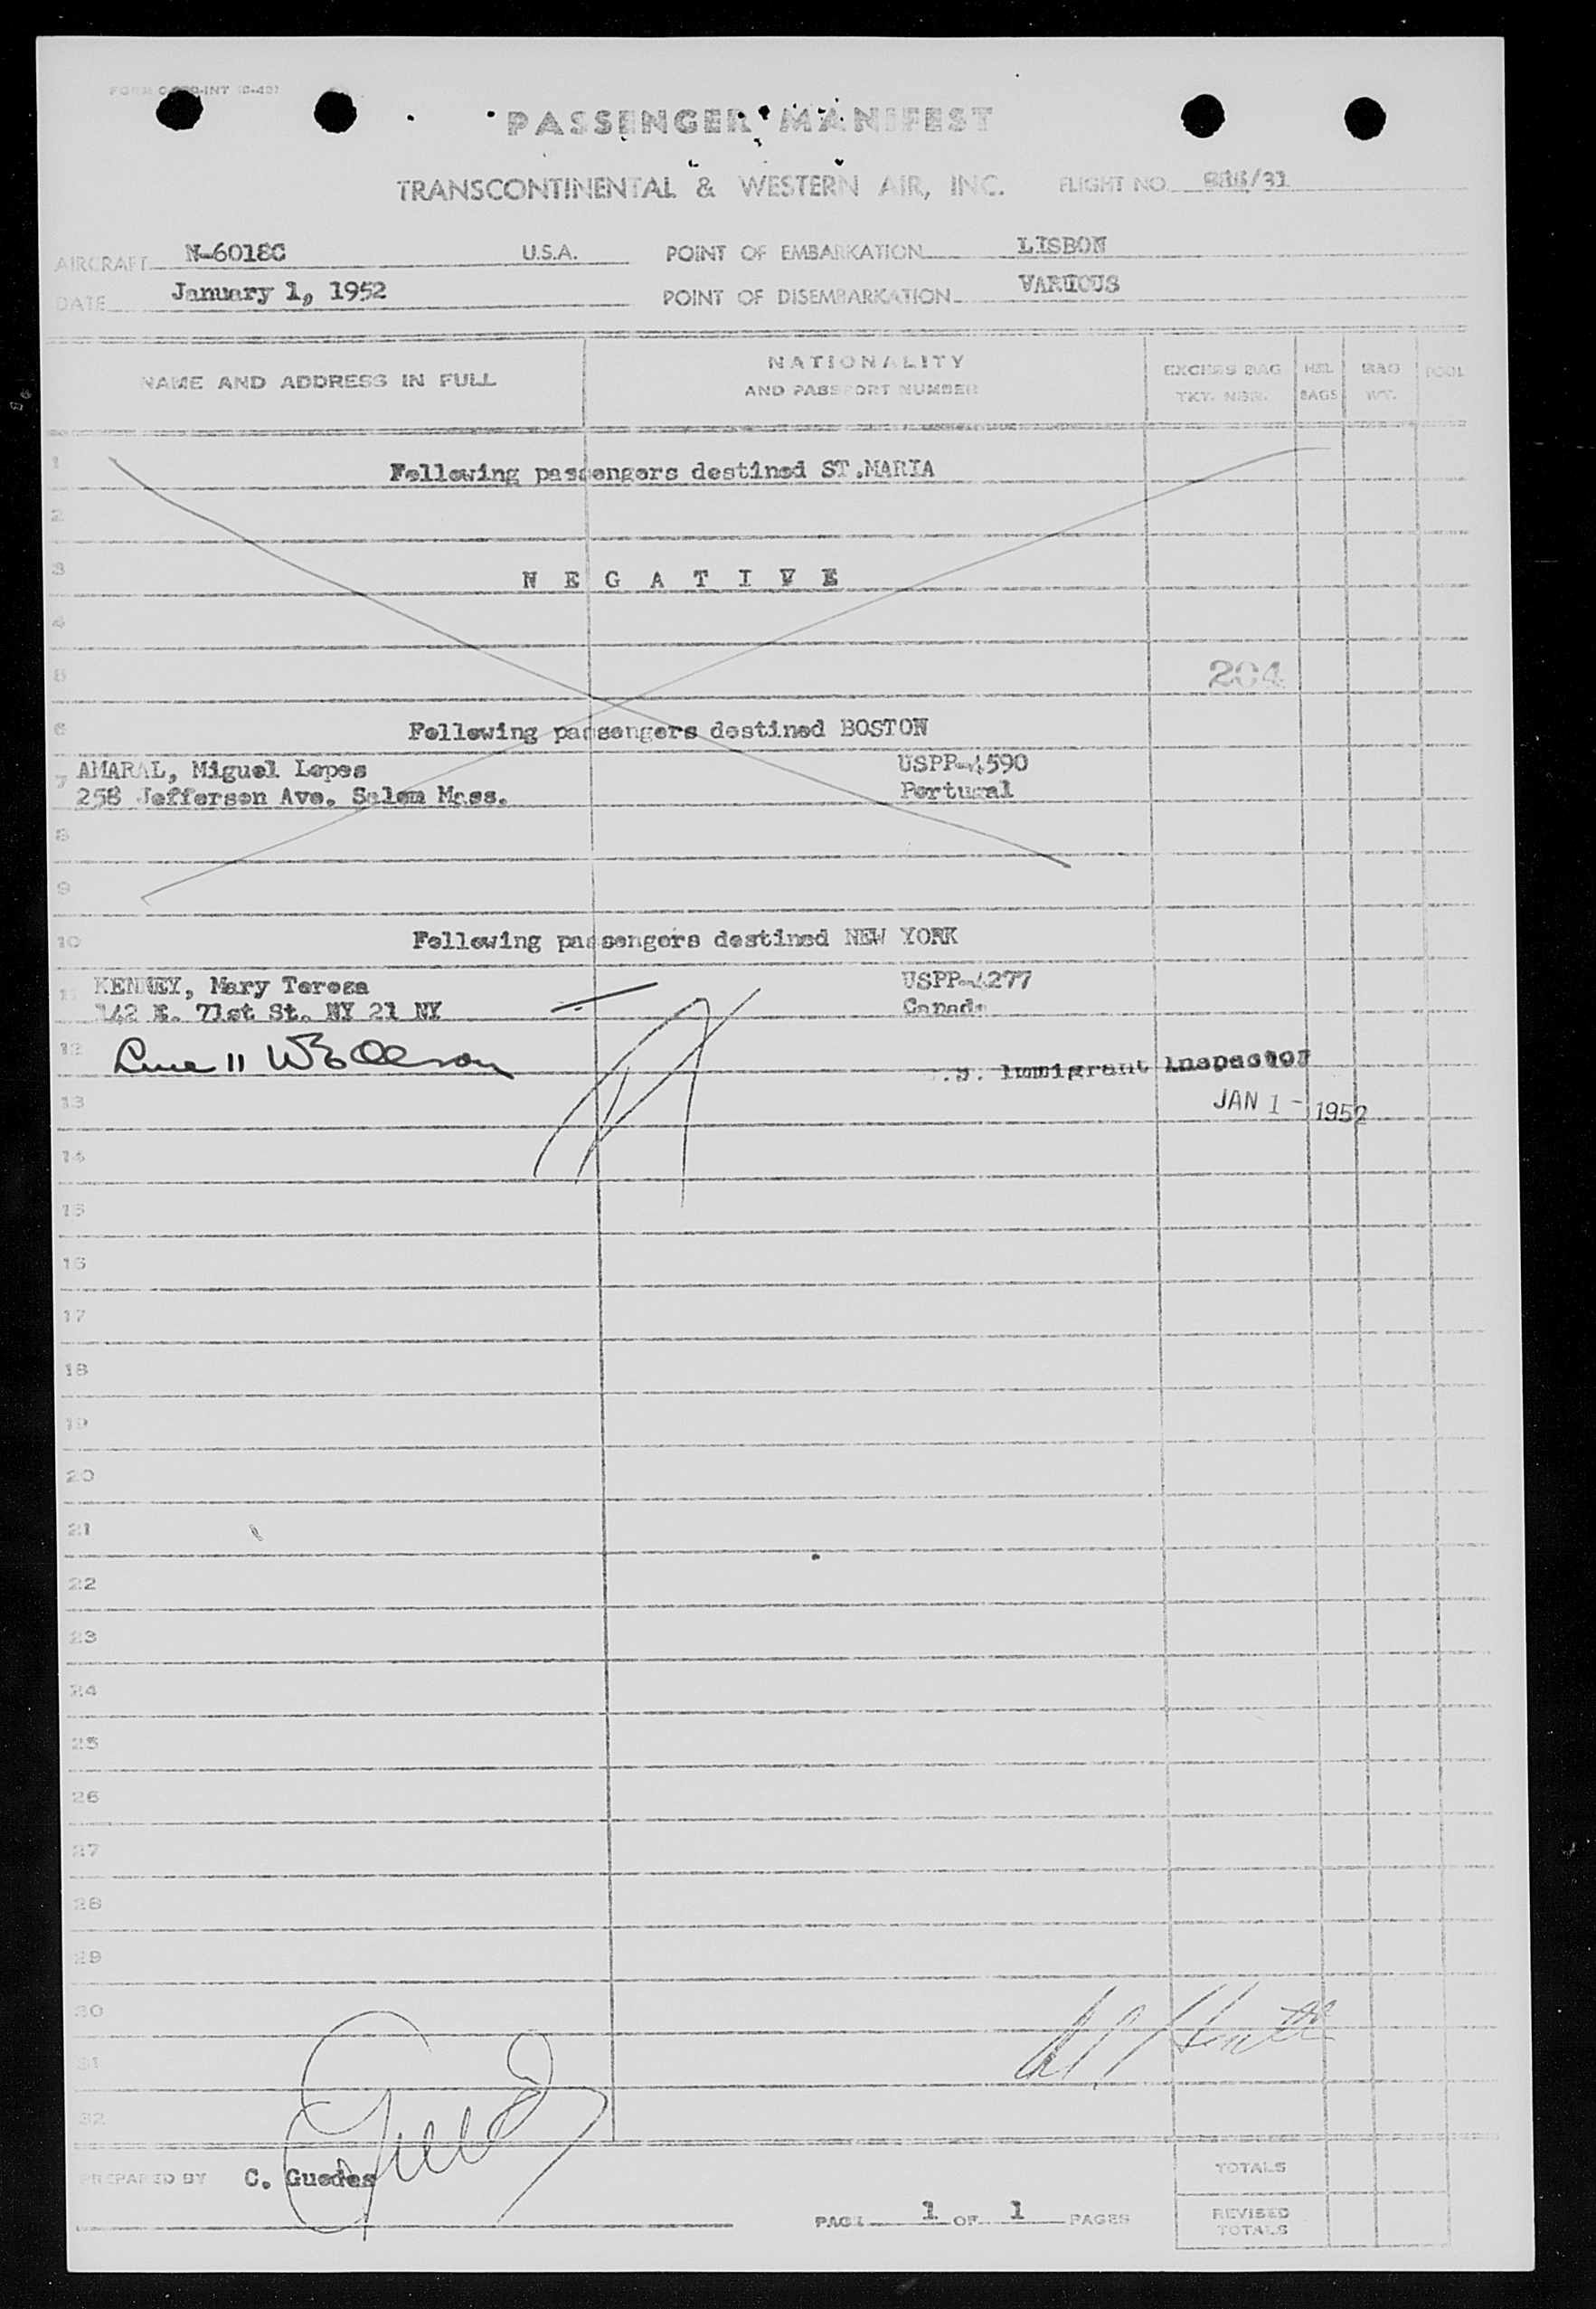 PASSENGER MANIFEST
TRANSCONTINENTAL & WESTERN AIR, INC. FLIGHT NO.
AIRCRAFT N-6018C U.S.A. POINT OF EMBARKATION LISBON
DATE January 1, 1952 POINT OF DISEMBARKATION VARIOUS
NAME AND ADDRESS IN FULL NATIONALITY AND PASSPORT NUMBER EXCESS BAG TKT. NBR. BAGS BAG WT.
1 Following passengers destined ST.MARIA
2
3 N E G A T I V E
4
5 204
6 Following passengers destined BOSTON
7 AMARAL, Miguel Lopes USPP-4590
258 Jefferson Ave. Salem Mass. Portugal
8
9
10 Following passengers destined NEW YORK
11 KENNEY, Mary Teresa USPP-4277
142 E. 71st St. NY 21 NY Canada
12 Line 11
.S. Immigrant Inspector
13 JAN 1 - 1952
14
15
16
17
18
19
20
21
22
23
24
25
26
27
28
29
30
31
32
PREPARED BY C. Guedes
TOTALS
PAGE 1 OF 1 PAGES
REVISED TOTALS